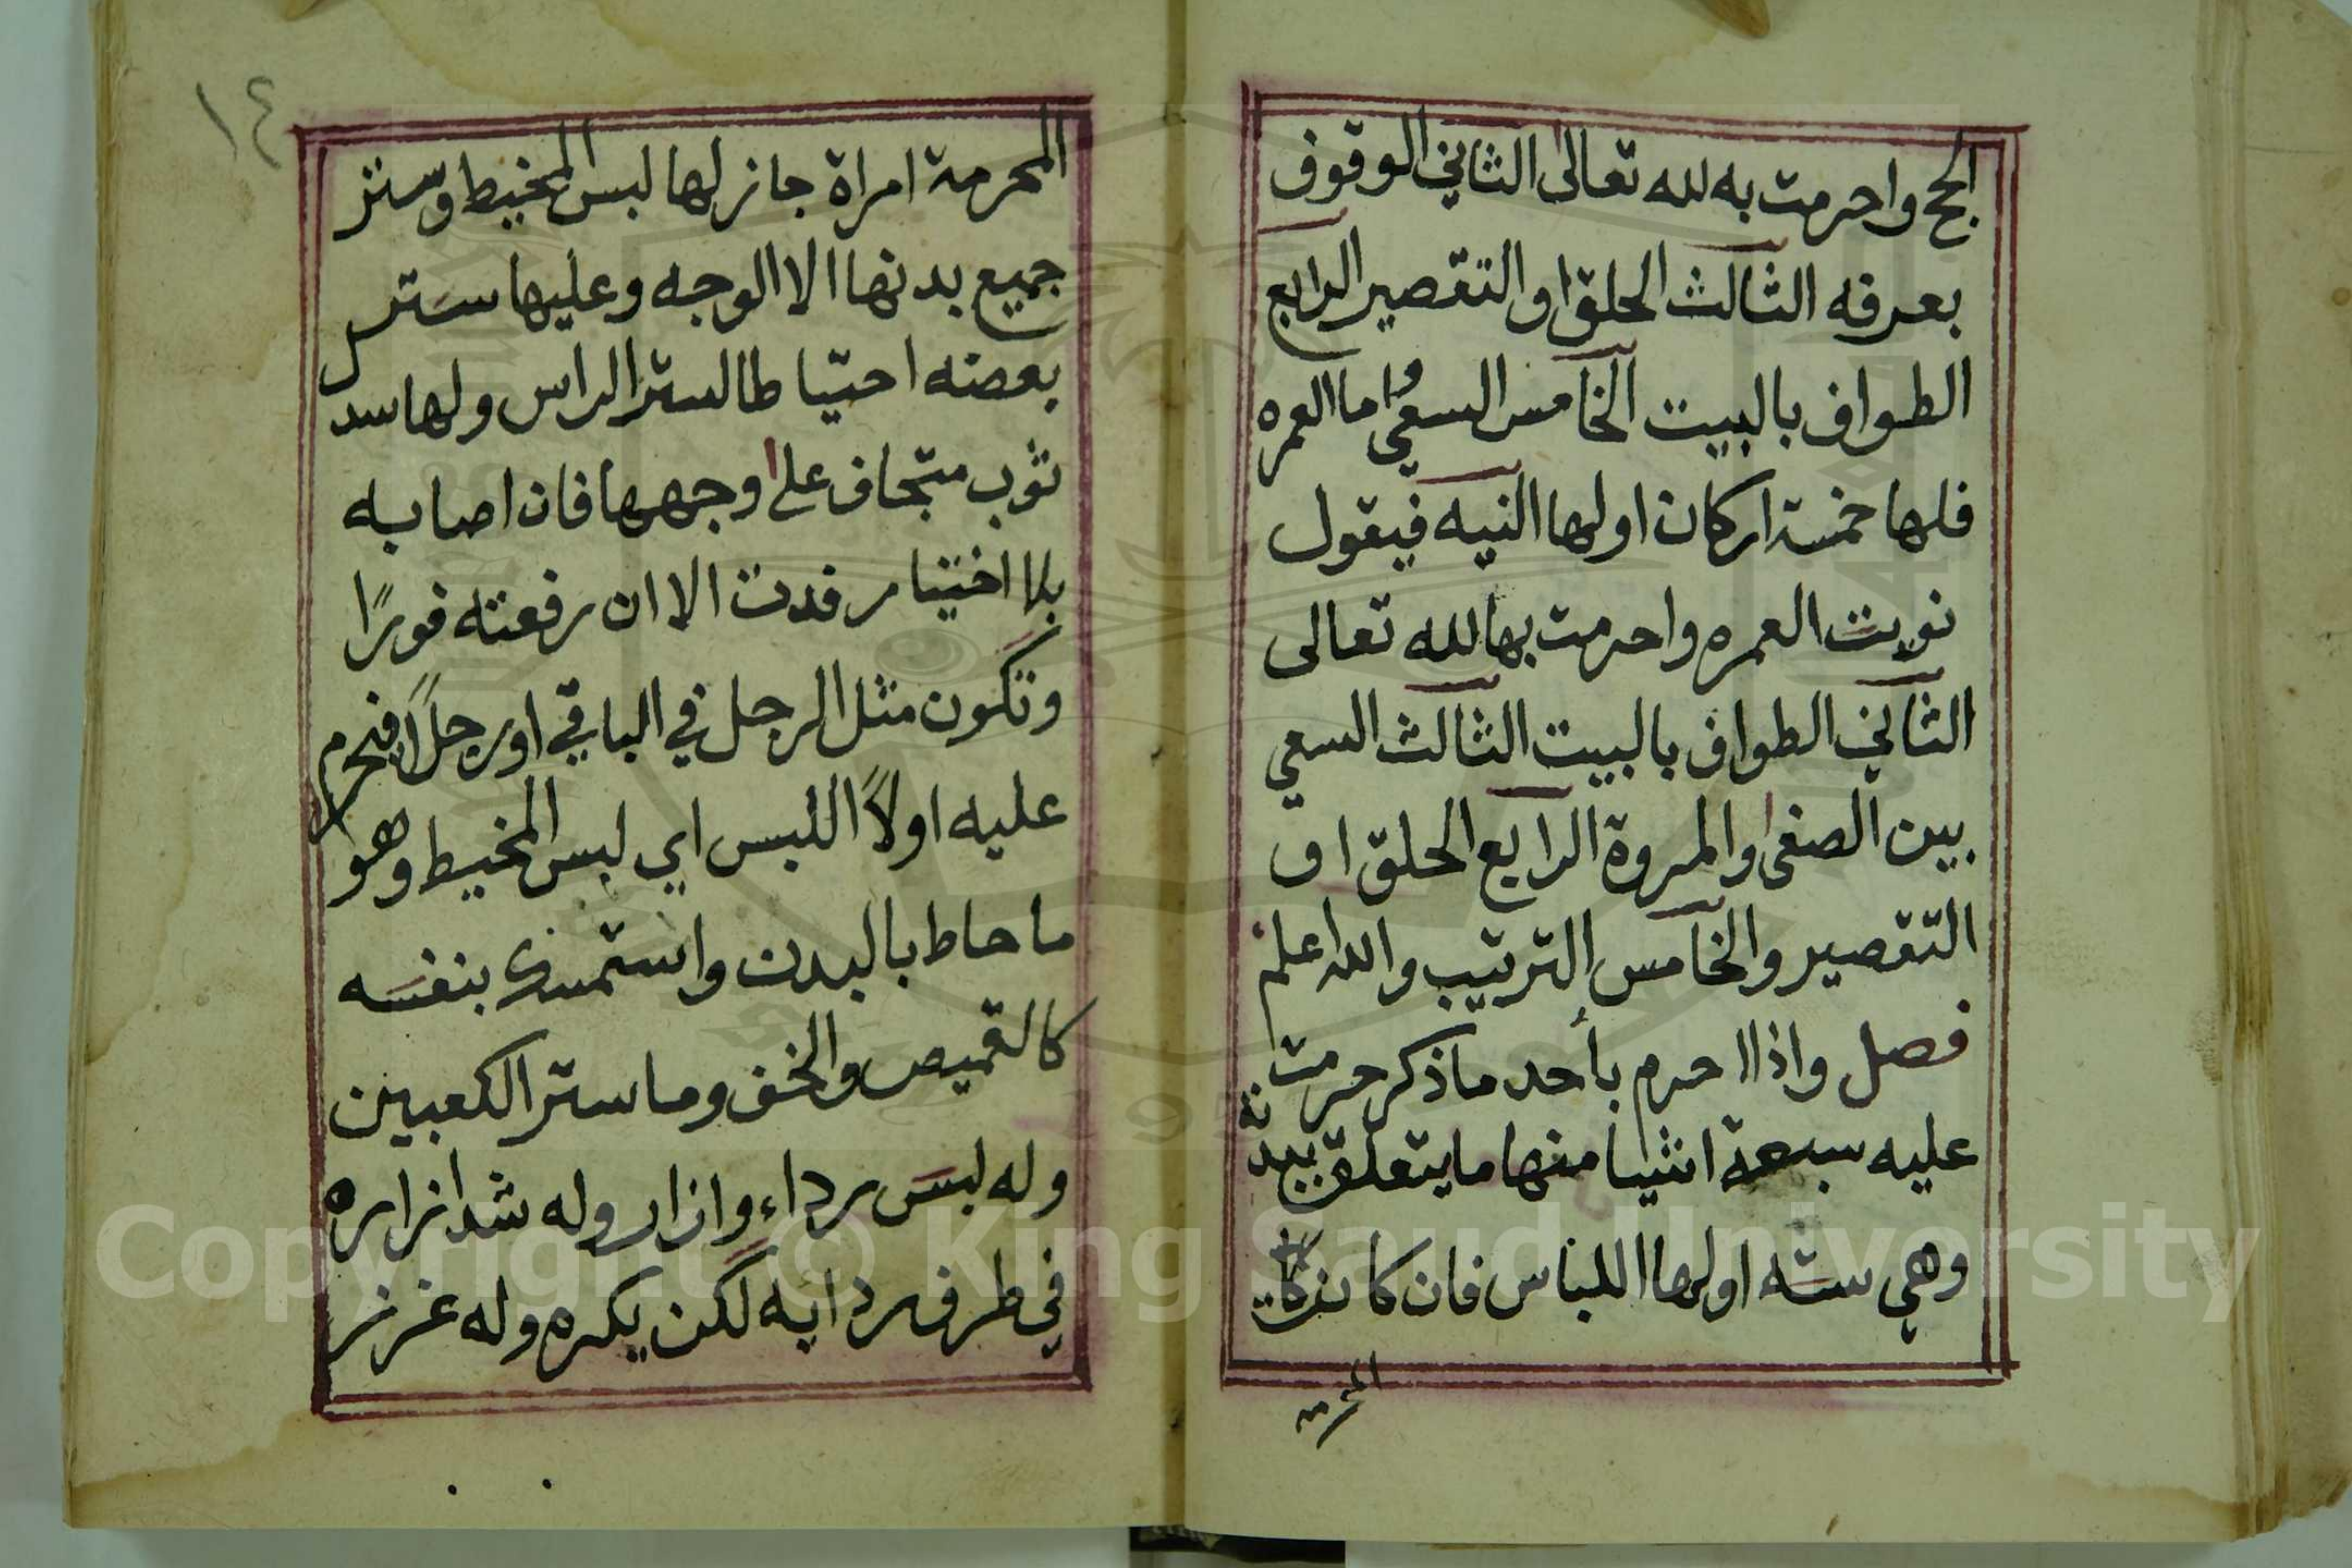 الحج واحرمت به لله تعالى الثاني الوقوف
بعرفه الثالث الحلق او التقصير الرابع
الطواف بالبيت الخامس السعي واما العمره
فلها خمسة اركان اولها النيه فيقول
نويت العمره واحرمت بها لله تعالى
الثاني الطواف بالبيت الثالث السعي
بين الصفى والمروة الرابع الحلق او
التقصير والخامس الترتيب والله اعلم
فصل واذا احرم بأحد ما ذكر حرمت
عليه سبعة اشيا منها ما يتعلق ببدنه
وهي سته اولها اللباس فان كانت
المحرمة
١٤
المحرمة امراة جاز لها لبس المخيط وستر
جميع بدنها الا الوجه وعليها ستر
بعضه احتياطا لستر الراس ولها سد
ثوب متجاف على وجهها فان اصابه
بلا اختيار فدت الا ان رفعته فورًا
وتكون مثل الرجل في الباقي او رجلاً فيحرم
عليه اولاً اللبس اي لبس المخيط وهو
ما حاط بالبدن واستمسك بنفسه
كالقميص والخف وما ستر الكعبين
وله لبس رداء وازار وله شد ازاره
في طرف ردايه لكن يكره وله غرز
Copyright © King Saud University